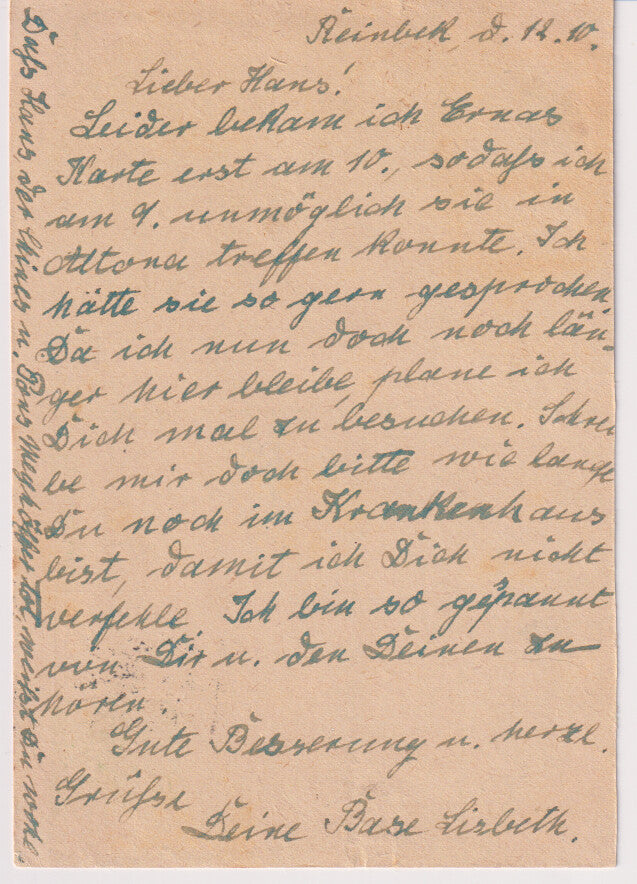 Reinbek, d. 12.10.
Lieber Hans!
Leider bekam ich Ernas
Karte erst am 10., sodaß ich
am 9. unmöglich sie in
Altona treffen konnte. Ich
hätte sie so gern gesprochen
Da ich nun doch noch län-
ger hier bleibe, plane ich
Dich mal zu besuchen. Schrei
be mir doch bitte wie lange
Du noch im Krankenhaus
bist, damit ich Dich nicht
verfehle Ich bin so gespannt
von Dir u. den Deinen zu
hören.
Gute Besserung u. herzl.
Grüße
Deine Base Lisbeth.
Daß Hans der u. tot, weißt Du wohl.